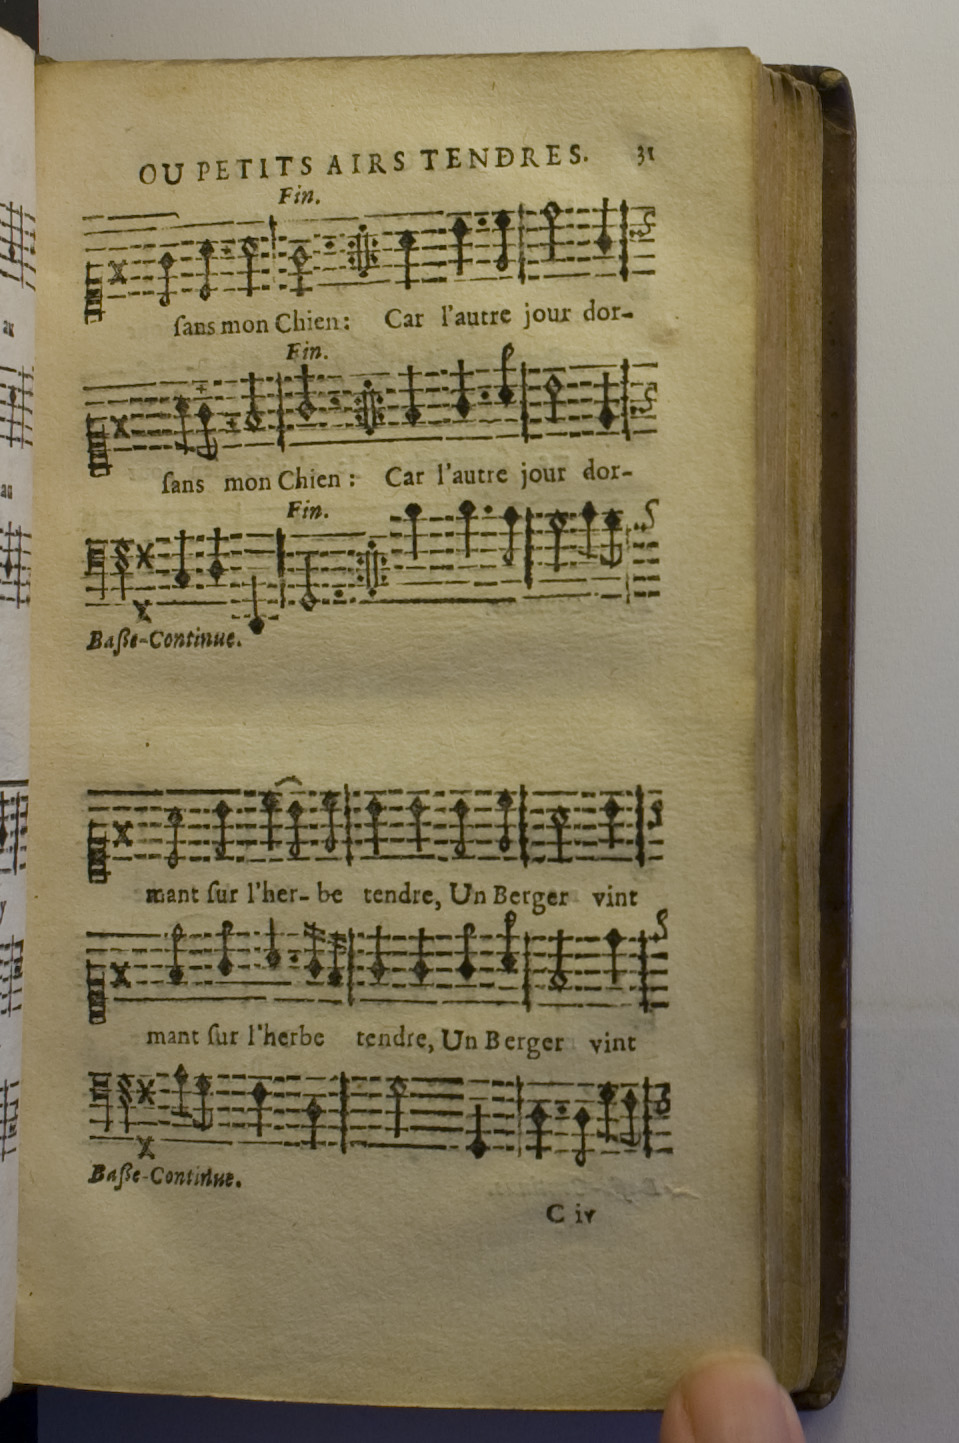 OU PETITS AIRS TENDRES. 31
Fin.
ſans mon Chien: Car l'autre jour dor-
Fin.
ſans mon Chien: Car l'autre jour dor-
Fin.
Baſſe-Continue.
mant ſur l'her- be tendre, Un Berger vint
mant ſur l'herbe tendre, Un Berger vint
Baſſe-Continue.
C iv